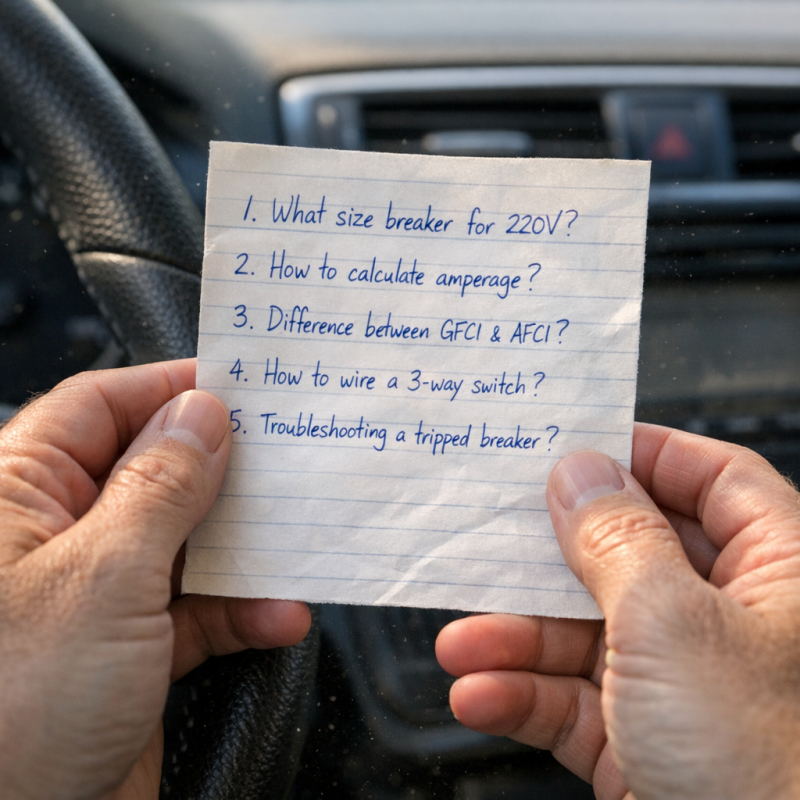 1. What size breaker for 220V?
2. How to calculate amperage?
3. Difference between GFCI & AFCI?
4. How to wire a 3-way switch?
5. Troubleshooting a tripped breaker?